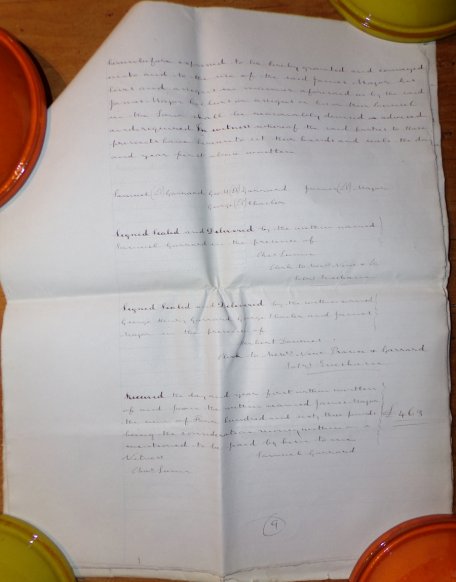 hereinbefore expressed to be hereby granted and conveyed
unto and to the use of the said James Major his
heirs and assigns in manner aforesaid as by the said
James Major his heirs or assigns or his or their Counsel
in the Law shall be reasonably devised or advised
and required In witness whereof the said parties to these
presents have hereunto set their hands and seals the day
and year first above written
Samuel (LS) Garrard Geo H (LS) Garrard James (LS) Major
George (LS) Thacker
Signed Sealed and Delivered by the within named
Samuel Garrard in the presence of
Chas
Clerk to Messrs
Solrs
Signed Sealed and Delivered by the within named
George Henry Garrard George Thacker and James
Major in the presence of
Herbert
Clerk to Messrs & Garrard
Solrs
Received the day and year first within written
of and from the within named James Major
the sum of Four hundred and sixty three pounds
being the consideration money within
mentioned to be paid by him to me
£463
Witness
Samuel Garrard
Chas
9